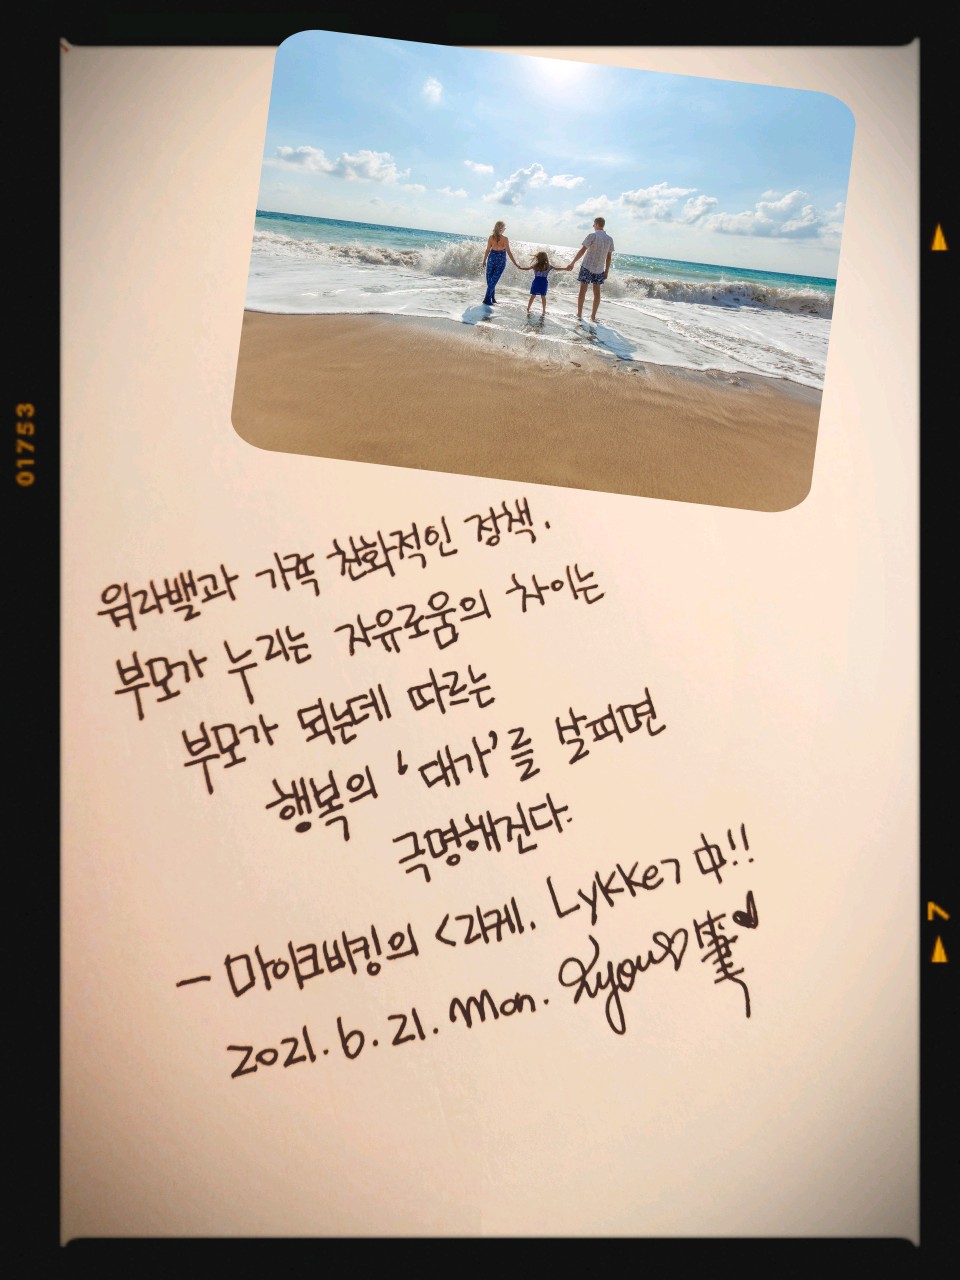 워라밸과 가족 친화적인 정책.
부모가 누리는 자유로움의 차이는
부모가 되는데 따르는
행복의 '대가'를 살피면
극명해진다.
- 마이크바킹의 <리케. Lykke> 中!!
2021. 6. 21. Mon. Kyou♡筆♥
01753
7